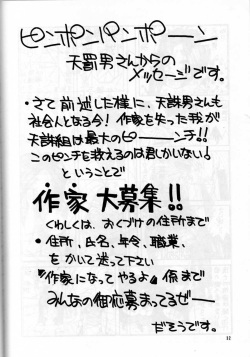 ピンポンパンポーン
天罰男さんからの
メッセージです。
・さて前述した様に、天誅男さんも
社会人となる今!作家を失った我が
天誅組は最大のピーーンチ!!
このピンチを救えるのは君しかいない!
ということで
作家大募集!!
くわしくは、おくづけの住所まで
・住所、氏名、年令、職業、
をかいて送って下さい
『作家になってやるよ』係まで
みんなの御応募まってるぜー
だそうです。
11